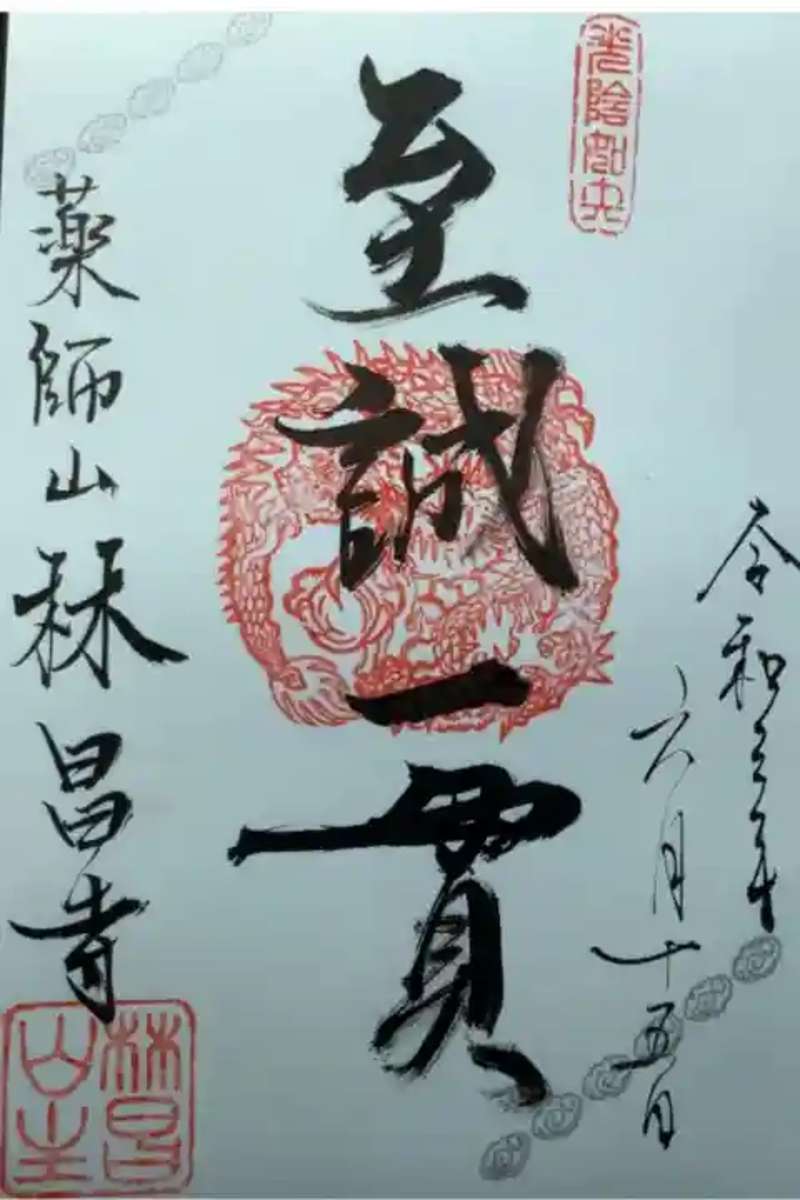 光陰如矢
令和三年
六月十五日
至誠一貫
薬師山林昌寺
林昌
山主